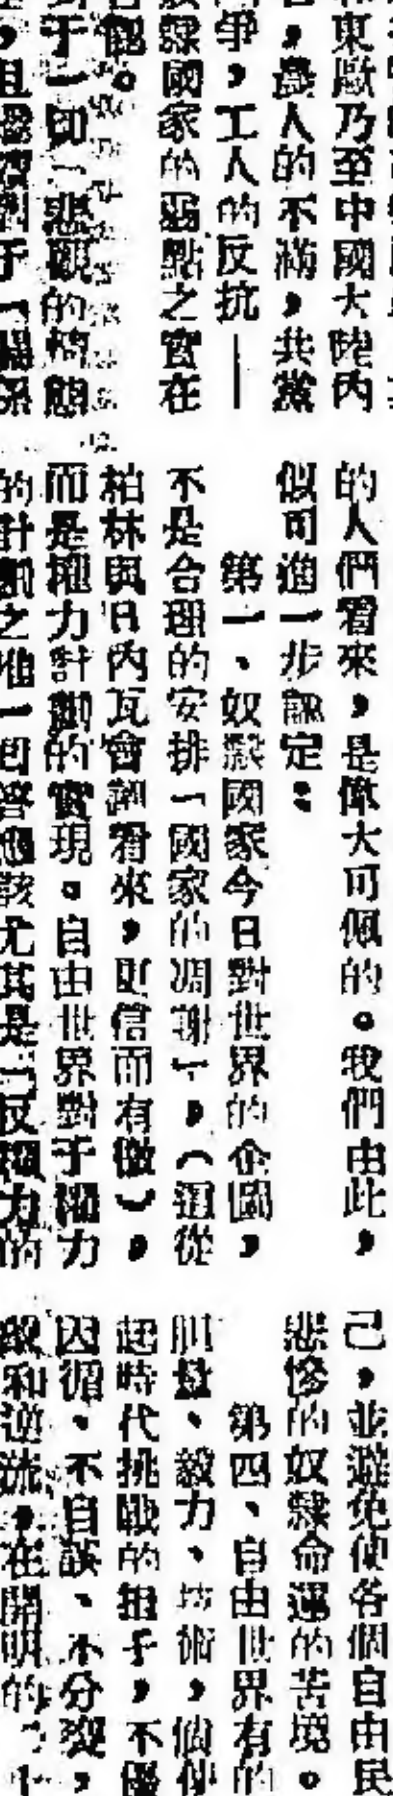 東歐乃至中國大陸內
，農人的不滿，共黨
爭，工人的反抗——
隸國家的弱點之實在
觀。
于一切「悲觀的
的人們看來，是偉大可佩的。我們由此，
似可進一步認定：
第一、奴隸國家今日對世界的企圖，
不是合理的安排「國家的凋謝」，（這從
柏林與日內瓦會議看來，則信而有徵），
而是權力計劃的實現。自由世界對于權力
的計劃之唯一回答應該尤其是「反權力的
己，並避免使各個自由民
悲慘的奴隸命運的苦境。
第四、自由世界有的
胆量、毅力、技術，倘使
起時代挑戰的担子，不
因循、不自誤、不分裂，
和逆流，在開明的